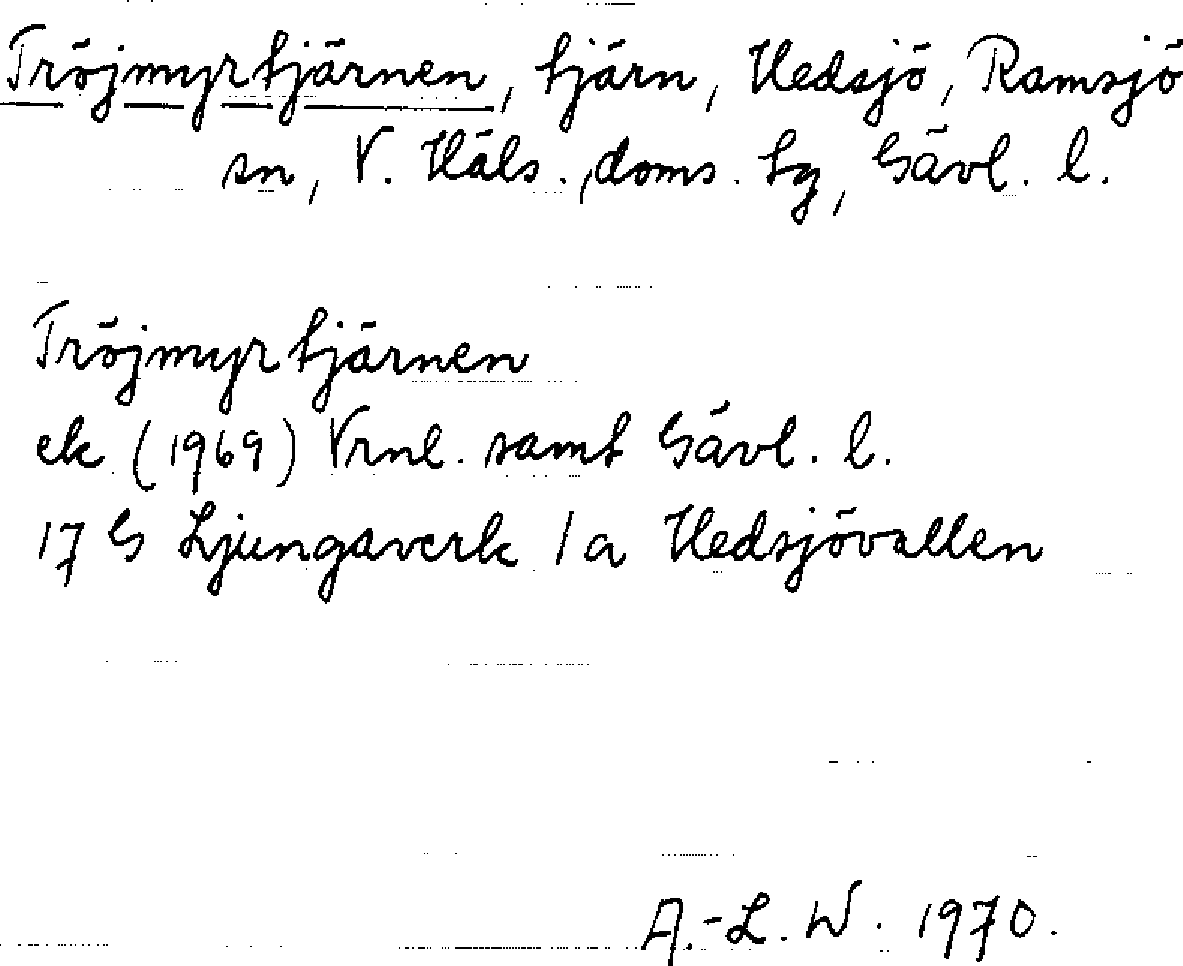 Tröjmyrtjärnen, tjärn, Hedsjö, Ramsjö
sn, V. Häls. doms. tg, Gävl. l.
Tröjmyrtjärnen
ek (1969) Vrnl. samt Gävl. l.
17 G Ljungaverk 1a Hedsjövallen
A.-L. W. 1970.